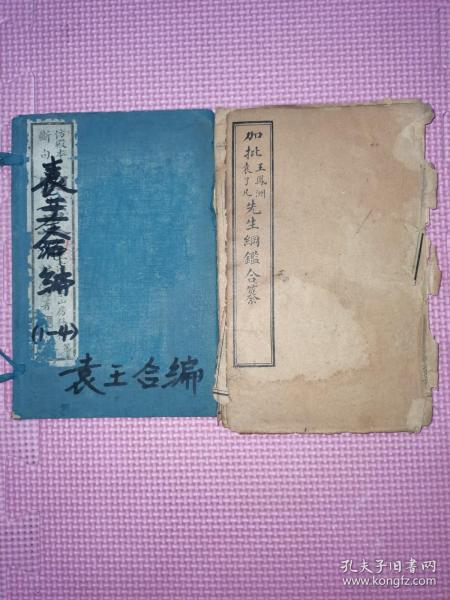 仿殿本
斷句
袁王合編
(1-4)
袁王合編
加批王鳳洲袁了凡先生綱鑑合纂
孔夫子旧书网
www.kongfz.com